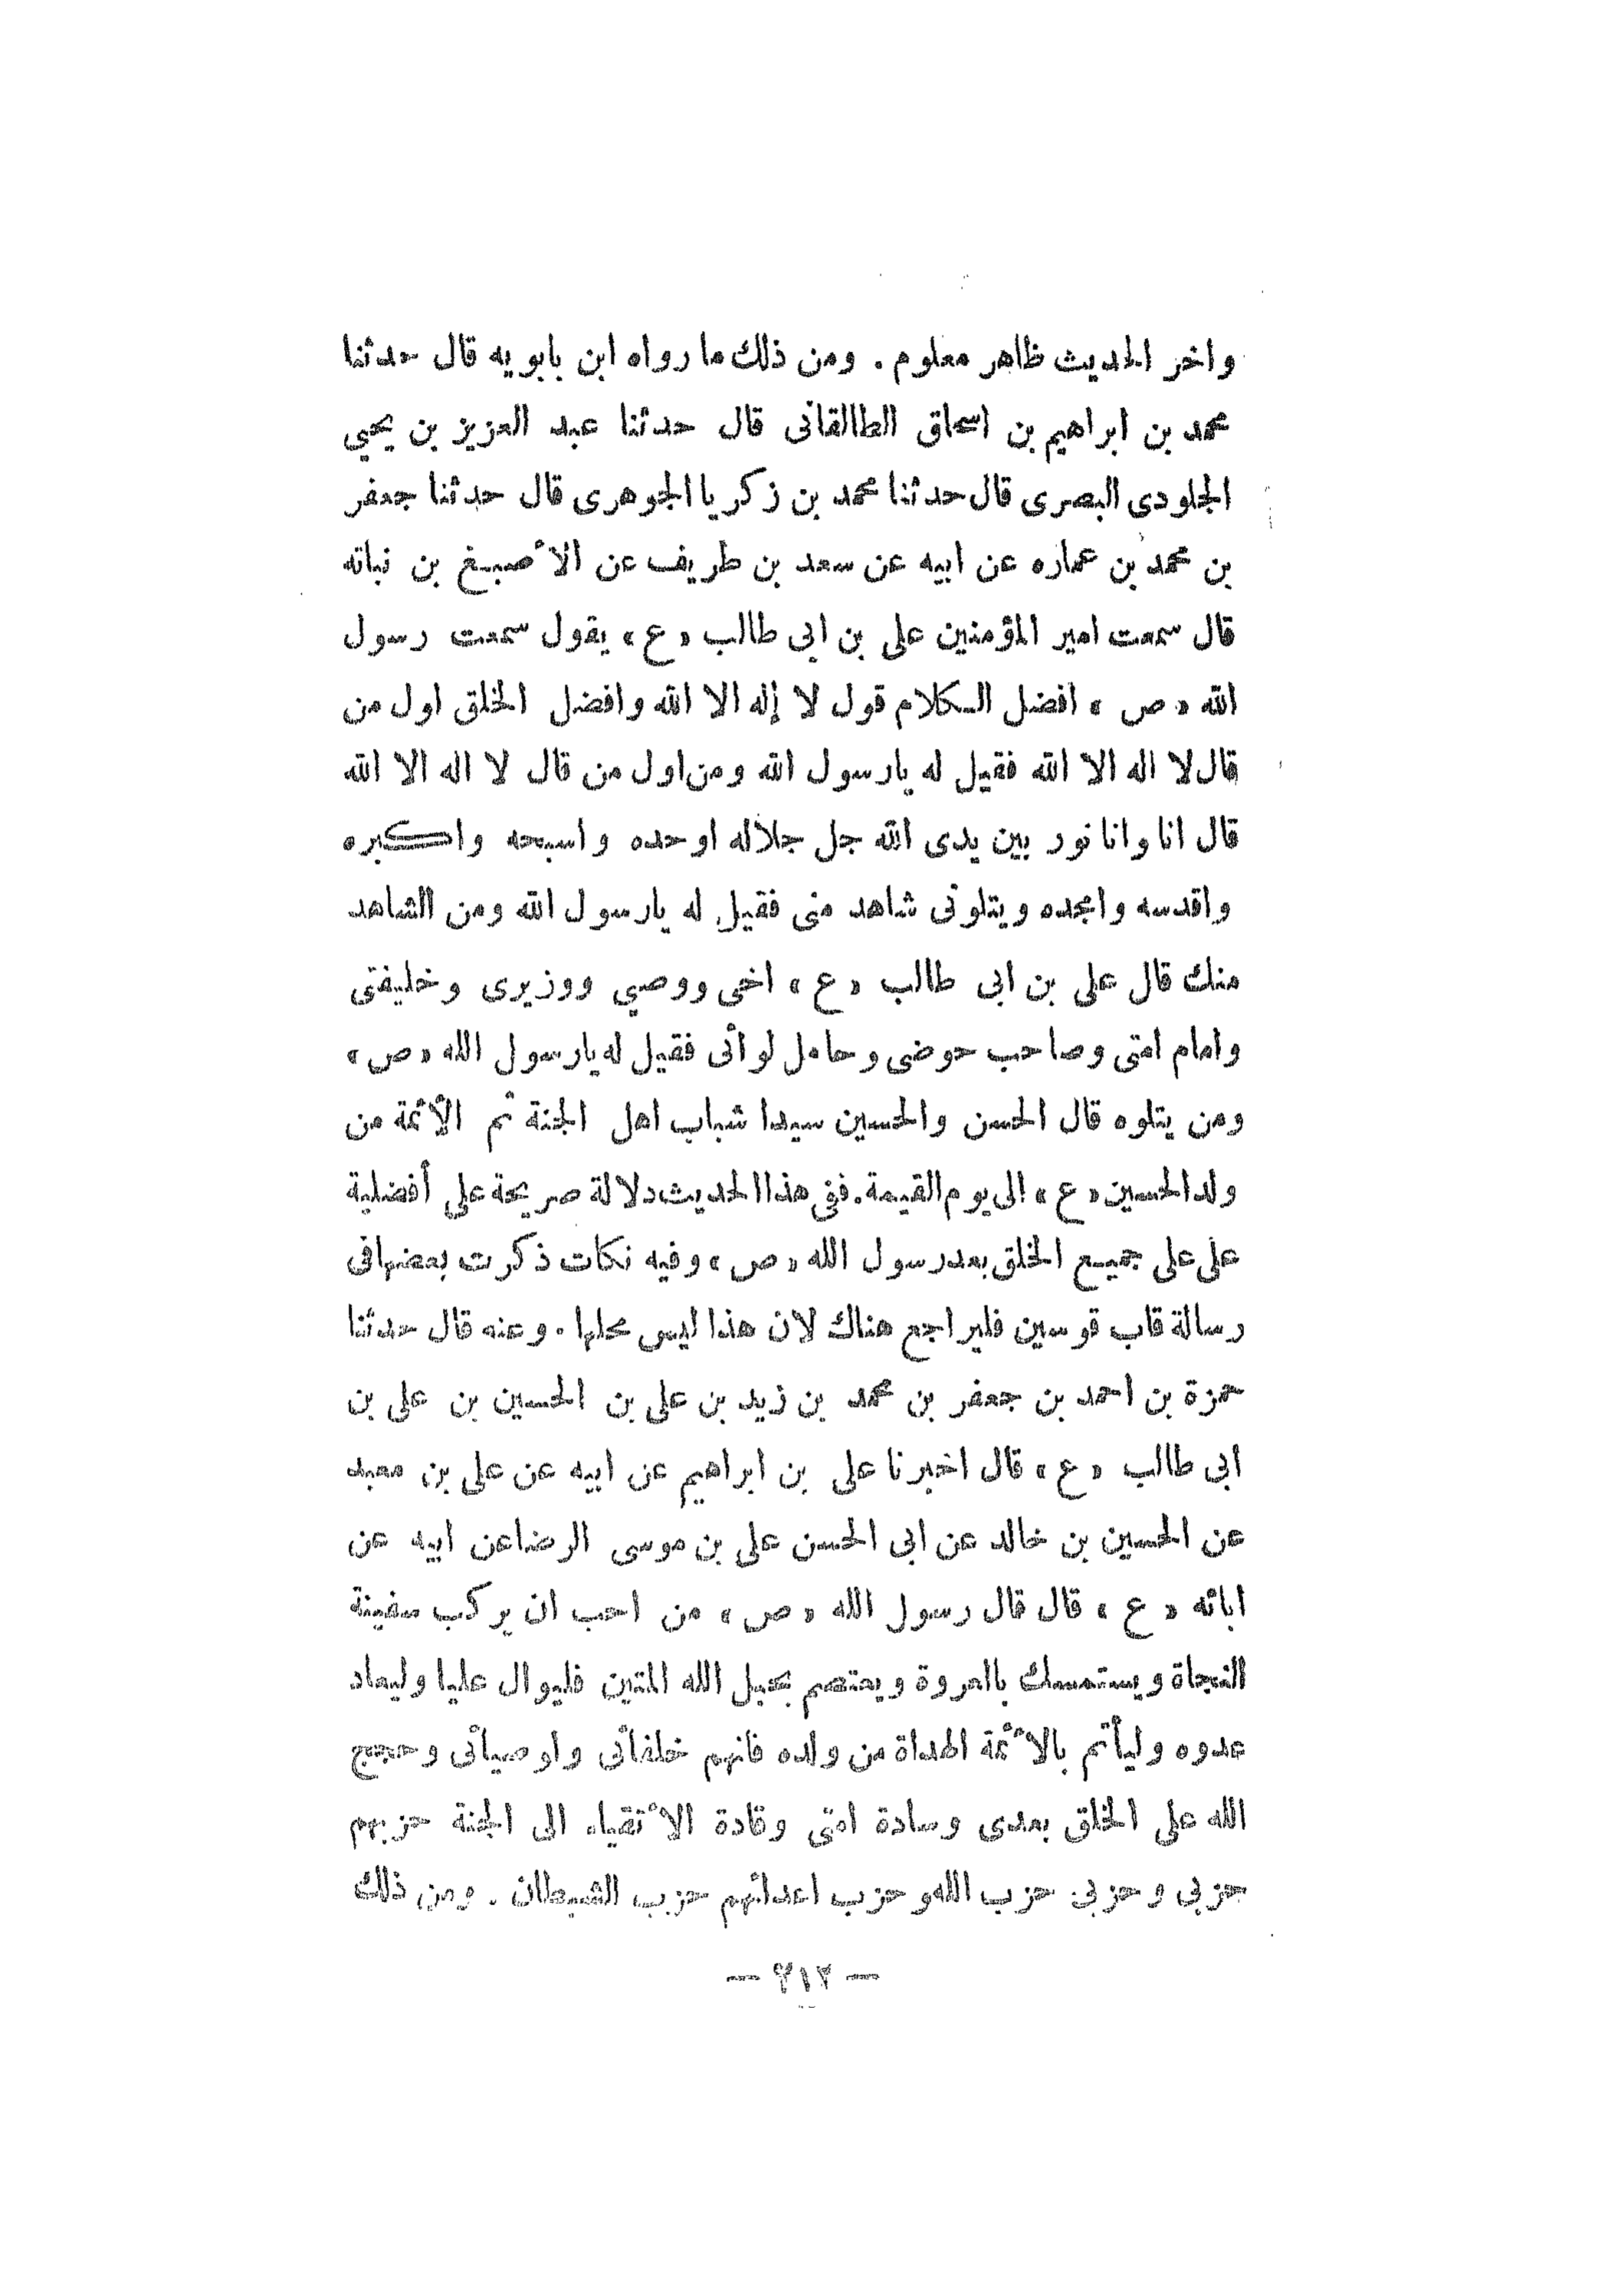 واخر الحديث ظاهر معلوم . ومن ذلك ما رواه ابن بابويه قال حدثنا
محمد بن ابراهيم بن اسحاق الطالقانى قال حدثنا عبد العزيز بن يحيي
الجلودى البصرى قال حدثنا محمد بن زكريا الجوهرى قال حدثنا جعفر
بن محمد بن عماره عن ابيه عن سعد بن طريف عن الأصبغ بن نباته
قال سمعت امير المؤمنين على بن ابى طالب « ع » يقول سمعت رسول
الله « ص » افضل الكلام قول لا إله الا الله وافضل الخلق اول من
قال لا اله الا الله فقيل له يارسول الله ومن اول من قال لا اله الا الله
قال انا وانا نور بين يدى الله جل جلاله اوحده واسبحه واكبره
واقدسه وامجده ويتلونى شاهد منى فقيل له يارسول الله ومن الشاهد
منك قال على بن ابى طالب « ع » اخى ووصي ووزيرى وخليفتى
وامام امتى وصاحب حوضى وحامل لوأنى فقيل له يارسول الله « ص »
ومن يتلوه قال الحسن والحسين سيدا شباب اهل الجنة ثم الأئمة من
ولد الحسين « ع » الى يوم القيمة . ففى هذا الحديث دلالة صريحة على أفضلية
على على جميع الخلق بعد رسول الله « ص » وفيه نكات ذكرت بعضها فى
رسالة قاب قوسين فليراجع هناك لان هذا ليس محلها . وعنه قال حدثنا
حمزة بن احمد بن جعفر بن محمد بن زيد بن على بن الحسين بن على بن
ابى طالب « ع » قال اخبرنا على بن ابراهيم عن ابيه عن على بن معبد
عن الحسين بن خالد عن ابى الحسن على بن موسى الرضا عن ابيه عن
ابائه « ع » قال قال رسول الله « ص » من احب ان يركب سفينة
النجاة ويستمسك بالعروة ويعتصم بحبل الله المتين فليوال عليا وليعاد
عدوه وليأتم بالأئمة الهداة من ولده فانهم خلفائى واوصيائى وحجج
الله على الخلق بعدى وسادة امتى وقادة الأتقياء الى الجنة حزبهم
حزبى وحزبى حزب الله وحزب اعدائهم حزب الشيطان . ومن ذلك
— ٢١٢ —